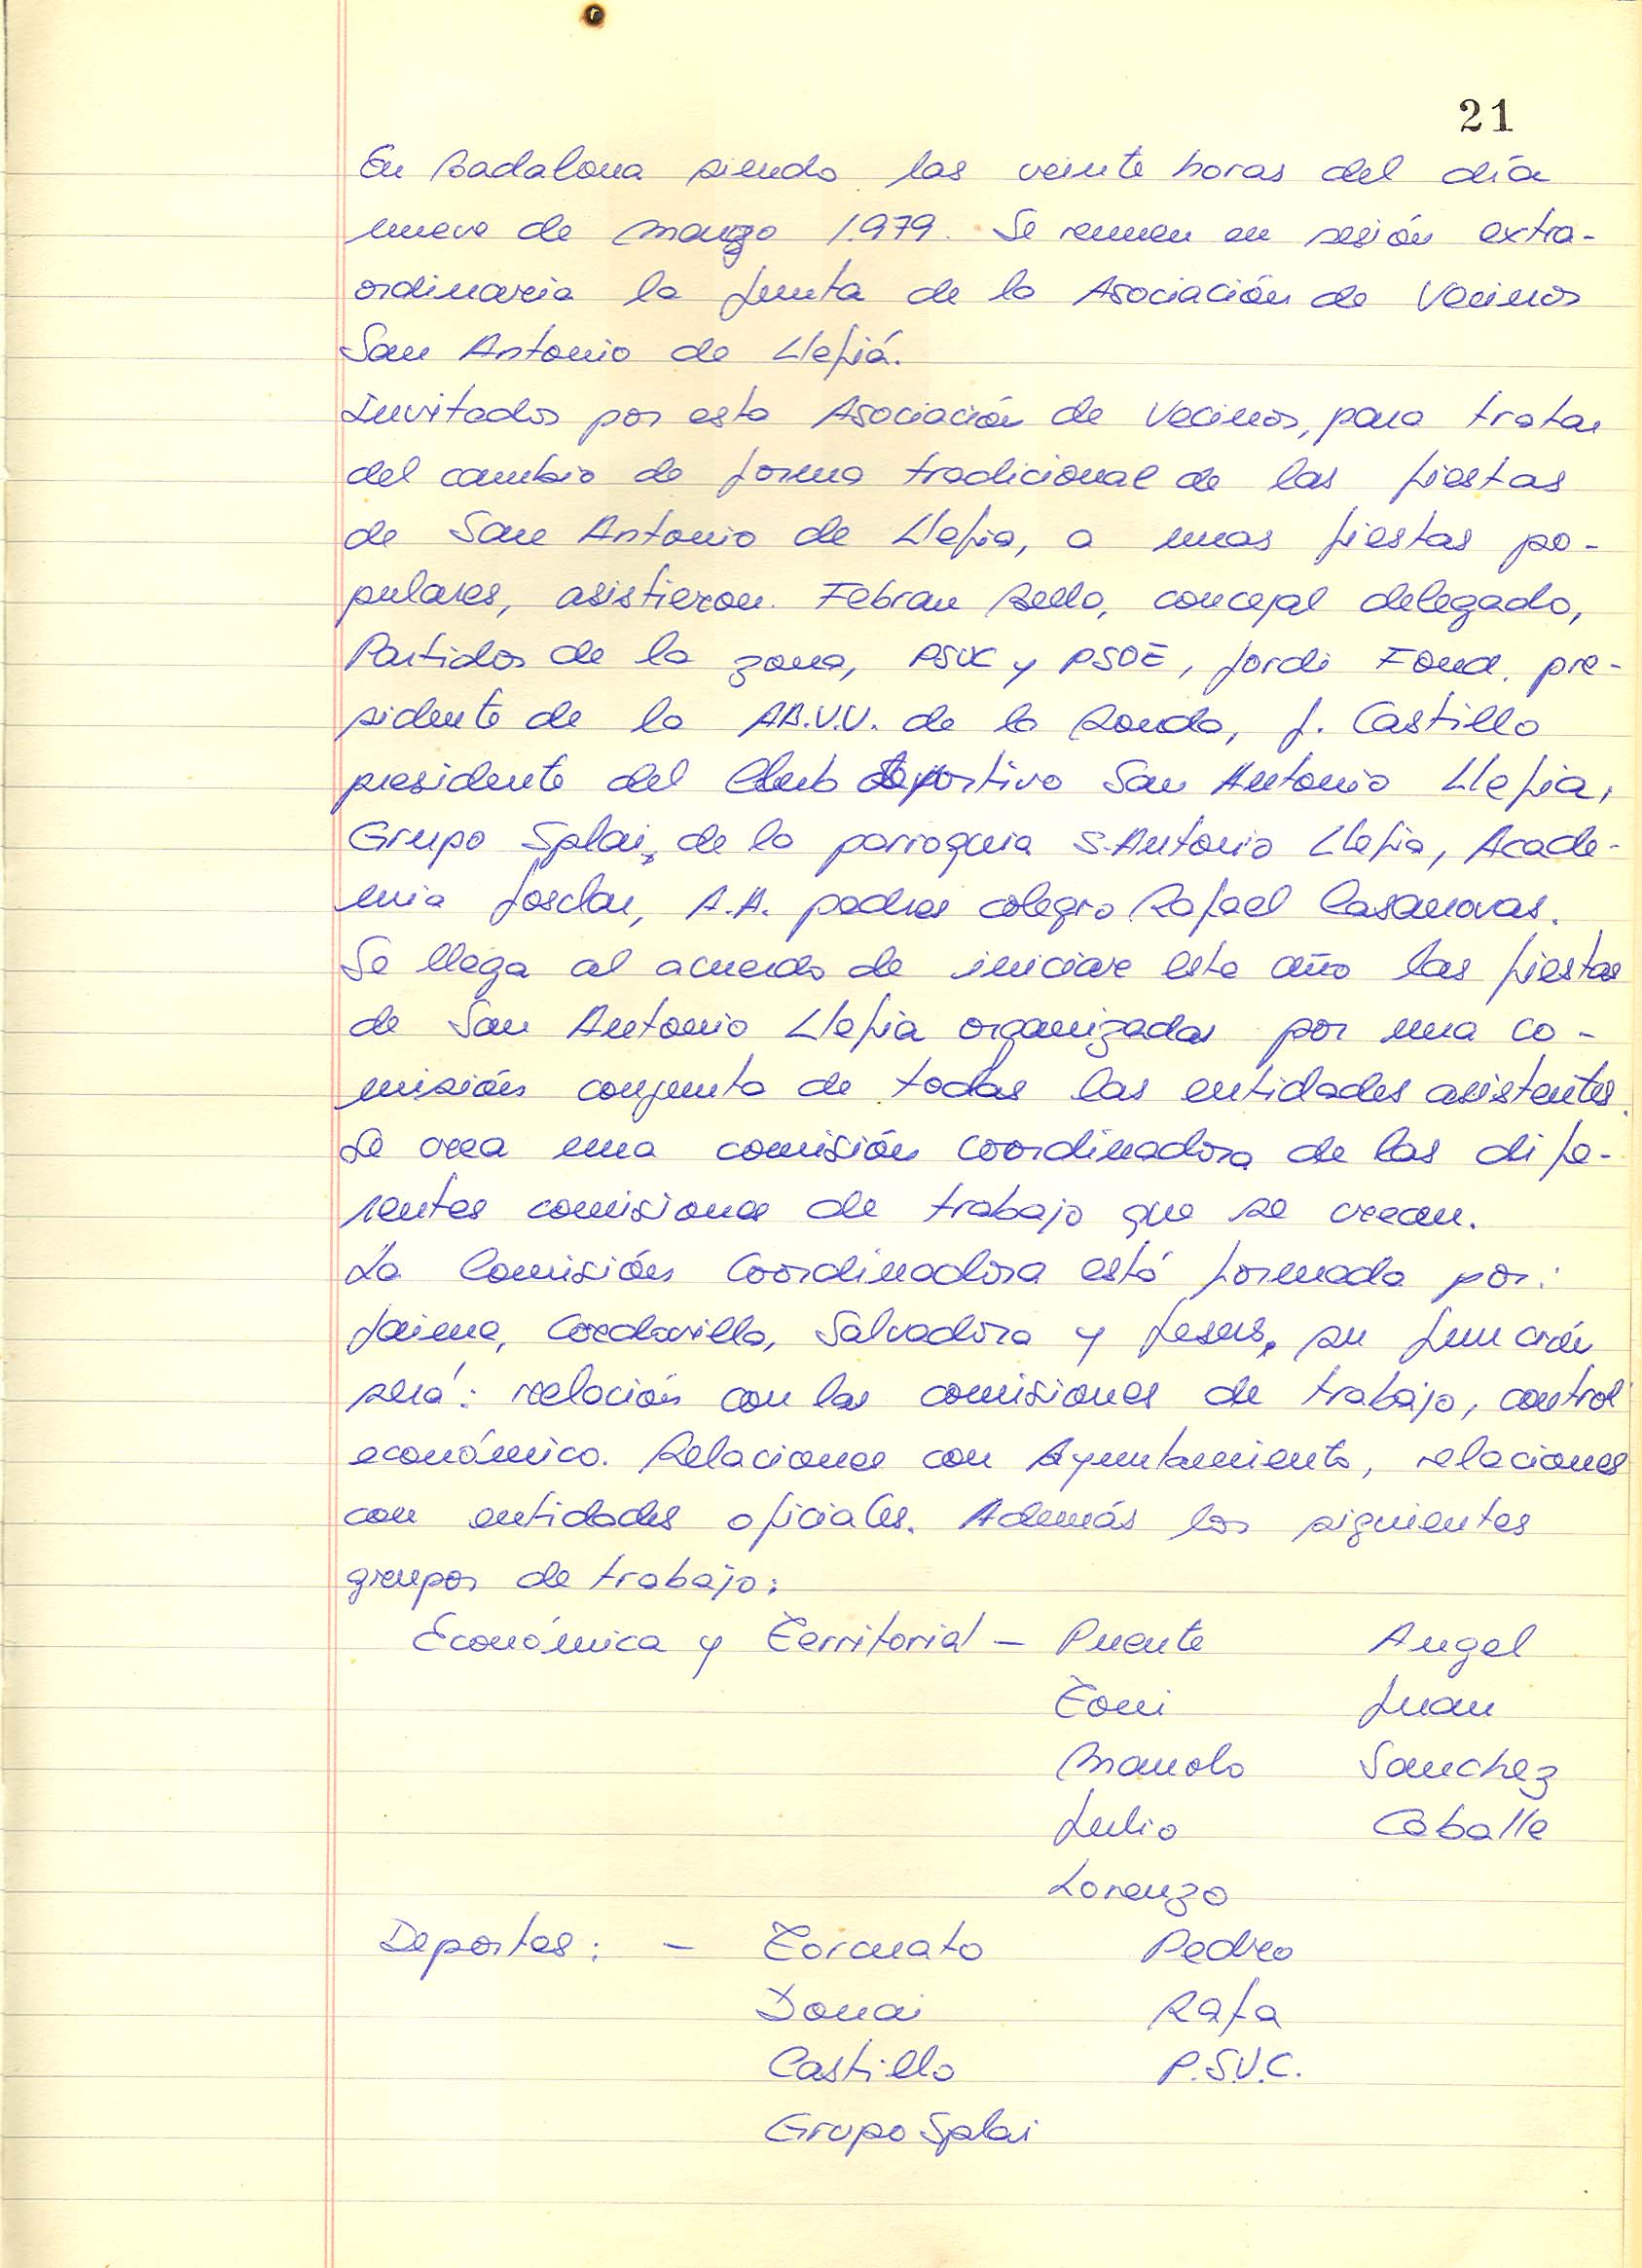 21
En Badalona siendo las veinte horas del día
nueve de marzo 1.979. Se reunen en sesión extra-
ordinaria la Junta de la Asociación de Vecinos
San Antonio de Llefiá.
Invitados por esta Asociación de Vecinos, para tratar
del cambio de forma tradicional de las fiestas
de San Antonio de Llefia, a unas fiestas po-
pulares, asistieron. Febran Bello, concejal delegado,
Partidos de la zona, PSUC y PSOE, Jordi Fond. pre-
sidente de la AA.V.V. de la Ronda, J. Castillo
presidente del Club deportivo San Antonio Llefia,
Grupo Splai, de la parroquia S. Antonio Llefia, Acade-
mia , A.A. padres colegio Rafael Casanovas.
Se llega al acuerdo de iniciar este año las fiestas
de San Antonio Llefia organizadas por una co-
misión conjunta de todas las entidades asistentes.
Se crea una comisión coordinadora de las dife-
rentes comisiones de trabajo que se crean.
La Comisión Coordinadora está formada por:
Jaime, Cordovilla, Salvadora y Jesus, su función
será: relación con las comisiones de trabajo, control
económico. Relaciones con Ayuntamiento, relaciones
con entidades oficiales. Además los siguientes
grupos de trabajo:
Económica y Territorial - Puente Angel
Toni Juan
Manolo Sanchez
Julio Caballe
Lorenzo
Deportes: - Torcuato Pedro
Donai Rafa
Castillo P.S.U.C.
Grupo Splai